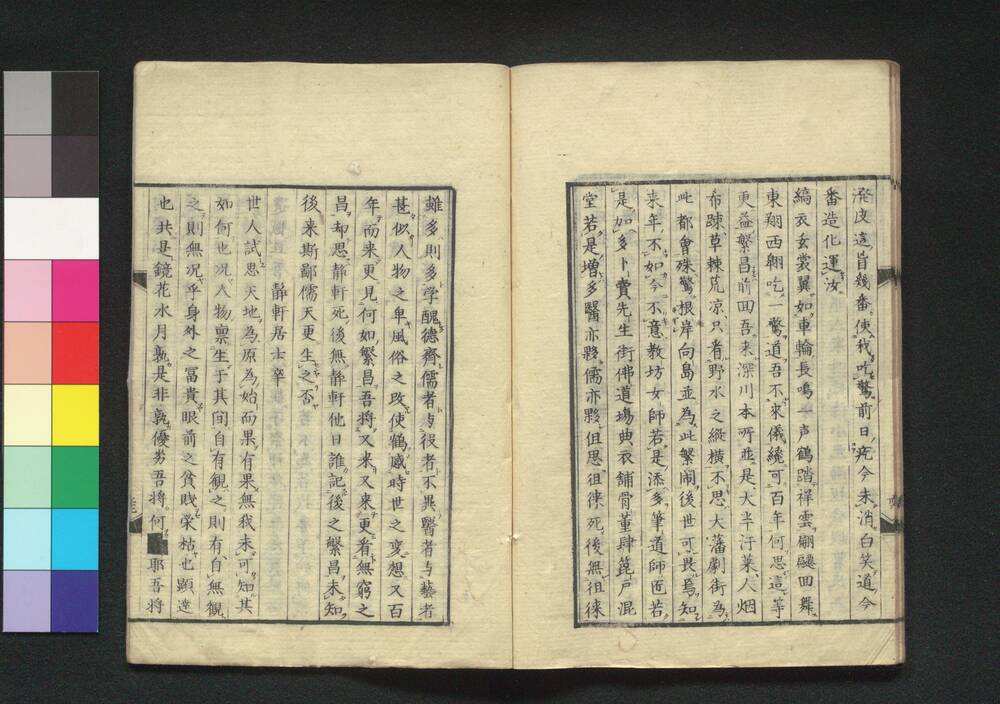 発皮這旨幾番使我吃驚前日疣今未消白笑道今
番造化運汝
縞衣玄裳翼如車輪長鳴一声鶴踏祥雲翩䙴回舞
東翔西翱吃一驚道吾不來儀纔可百年何思這等
更益繁昌前回吾来深川本所並是大半汙莱人烟
希疎草棘荒凉只看野水之縦横不思大藩劇街為
此都會殊驚根岸向島並為此繁閙後世可畏焉知
来年不如今不意教坊女師若是添多筆道師匠若
是加多卜賣先生街佛道塲典衣舗骨董肆篦戸混
堂若是増多醫亦夥儒亦夥但思徂徠死後無徂徠
雖多則多学醜德齊儒者与役者不異醫者与藝者
甚似人物之卑風俗之改使鶴感時世之変想又百
年而来更見何如繁昌吾將又来又来更看無窮之
昌却思静軒死後無静軒他日誰記後之繁昌未知
後来斯鄙儒天更生之否
静軒居士卒
世人試思天地為原為始而果有果無我未可知其
如何也况人物禀生于其間自有觀之則有自無觀
之則無况乎身外之冨貴眼前之貧賎栄枯也顕達
也共是鏡花水月孰是非孰優劣吾將何耶吾將